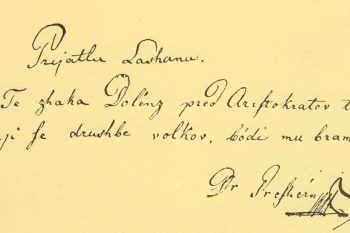 Prijatlu Lashanu.
Te zhaka Dolénz pred Ariſtokratov t
ji ſe drushbe volkov, bódi mu bram
Dr Preſhérn